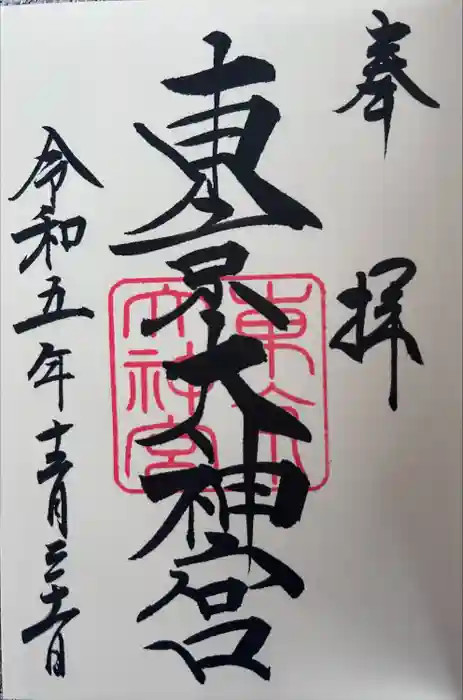 奉拝
東京大神宮
東京
大神宮
令和五年十二月三十一日